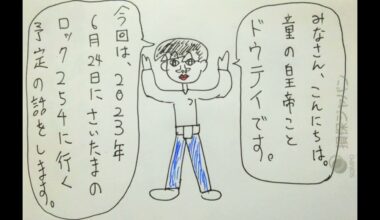 みなさん、こんにちは。
童の皇帝こと
ドウテイです。
今回は、2023年
6月24日にさいたまの
ロック254に行く
予定の話をします。